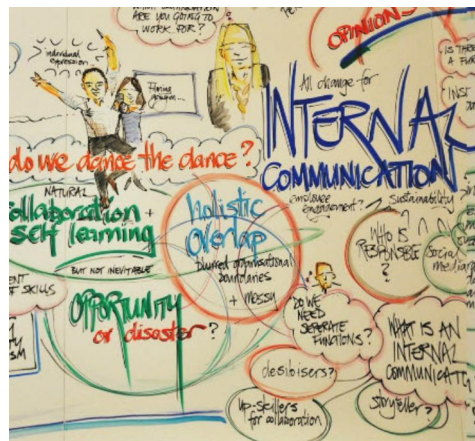 ARE YOU GOING TO
WORK FOR?
OPINIONS
individual
expression...
All change for
INTERNAL
COMMUNICATION
do we dance the dance?
NATURAL
collaboration +
self learning
BUT NOT INEVITABLE
holistic
overlap
blurred organisational
boundaries
+ messy
employee
engagement?
Sustainability
WHO IS
RESPONSIBLE
?
Social
media
OPPORTUNITY
or disaster?
DO WE
NEED
SEPERATE
FUNCTIONS?
WHAT IS AN
INTERNAL
COMMUNICATO
OF SKILLS
up-skillers
for collaboration
storyteller?